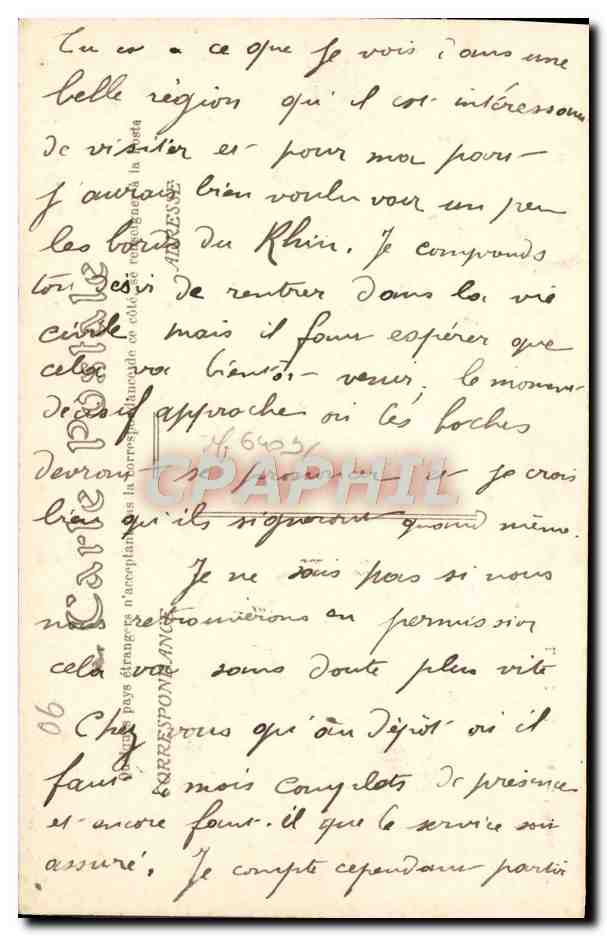 Tu es à ce que je vois dans une
belle région qu'il est intéressant
de visiter et pour ma part
j'aurais bien voulu voir un peu
les bords du Rhin. Je comprends
ton désir de rentrer dans la vie
civile mais il faut espérer que
cela va bientôt venir, le moment
décisif approche où les boches
devront se prononcer et je crois
bien qu'ils signeront quand même.
Je ne sais pas si nous
nous retrouverons en permission
cela va sans doute plus vite
Chez vous qu'au dépôt où il
faut mois complets de présence
et encore faut-il que le service soit
assuré. Je compte cependant partir
Carte postale
Quelques pays étrangers n'acceptant pas la correspondance de ce côté, se renseigner à la Poste
CORRESPONDANCE
ADRESSE
06
CPARPHIL